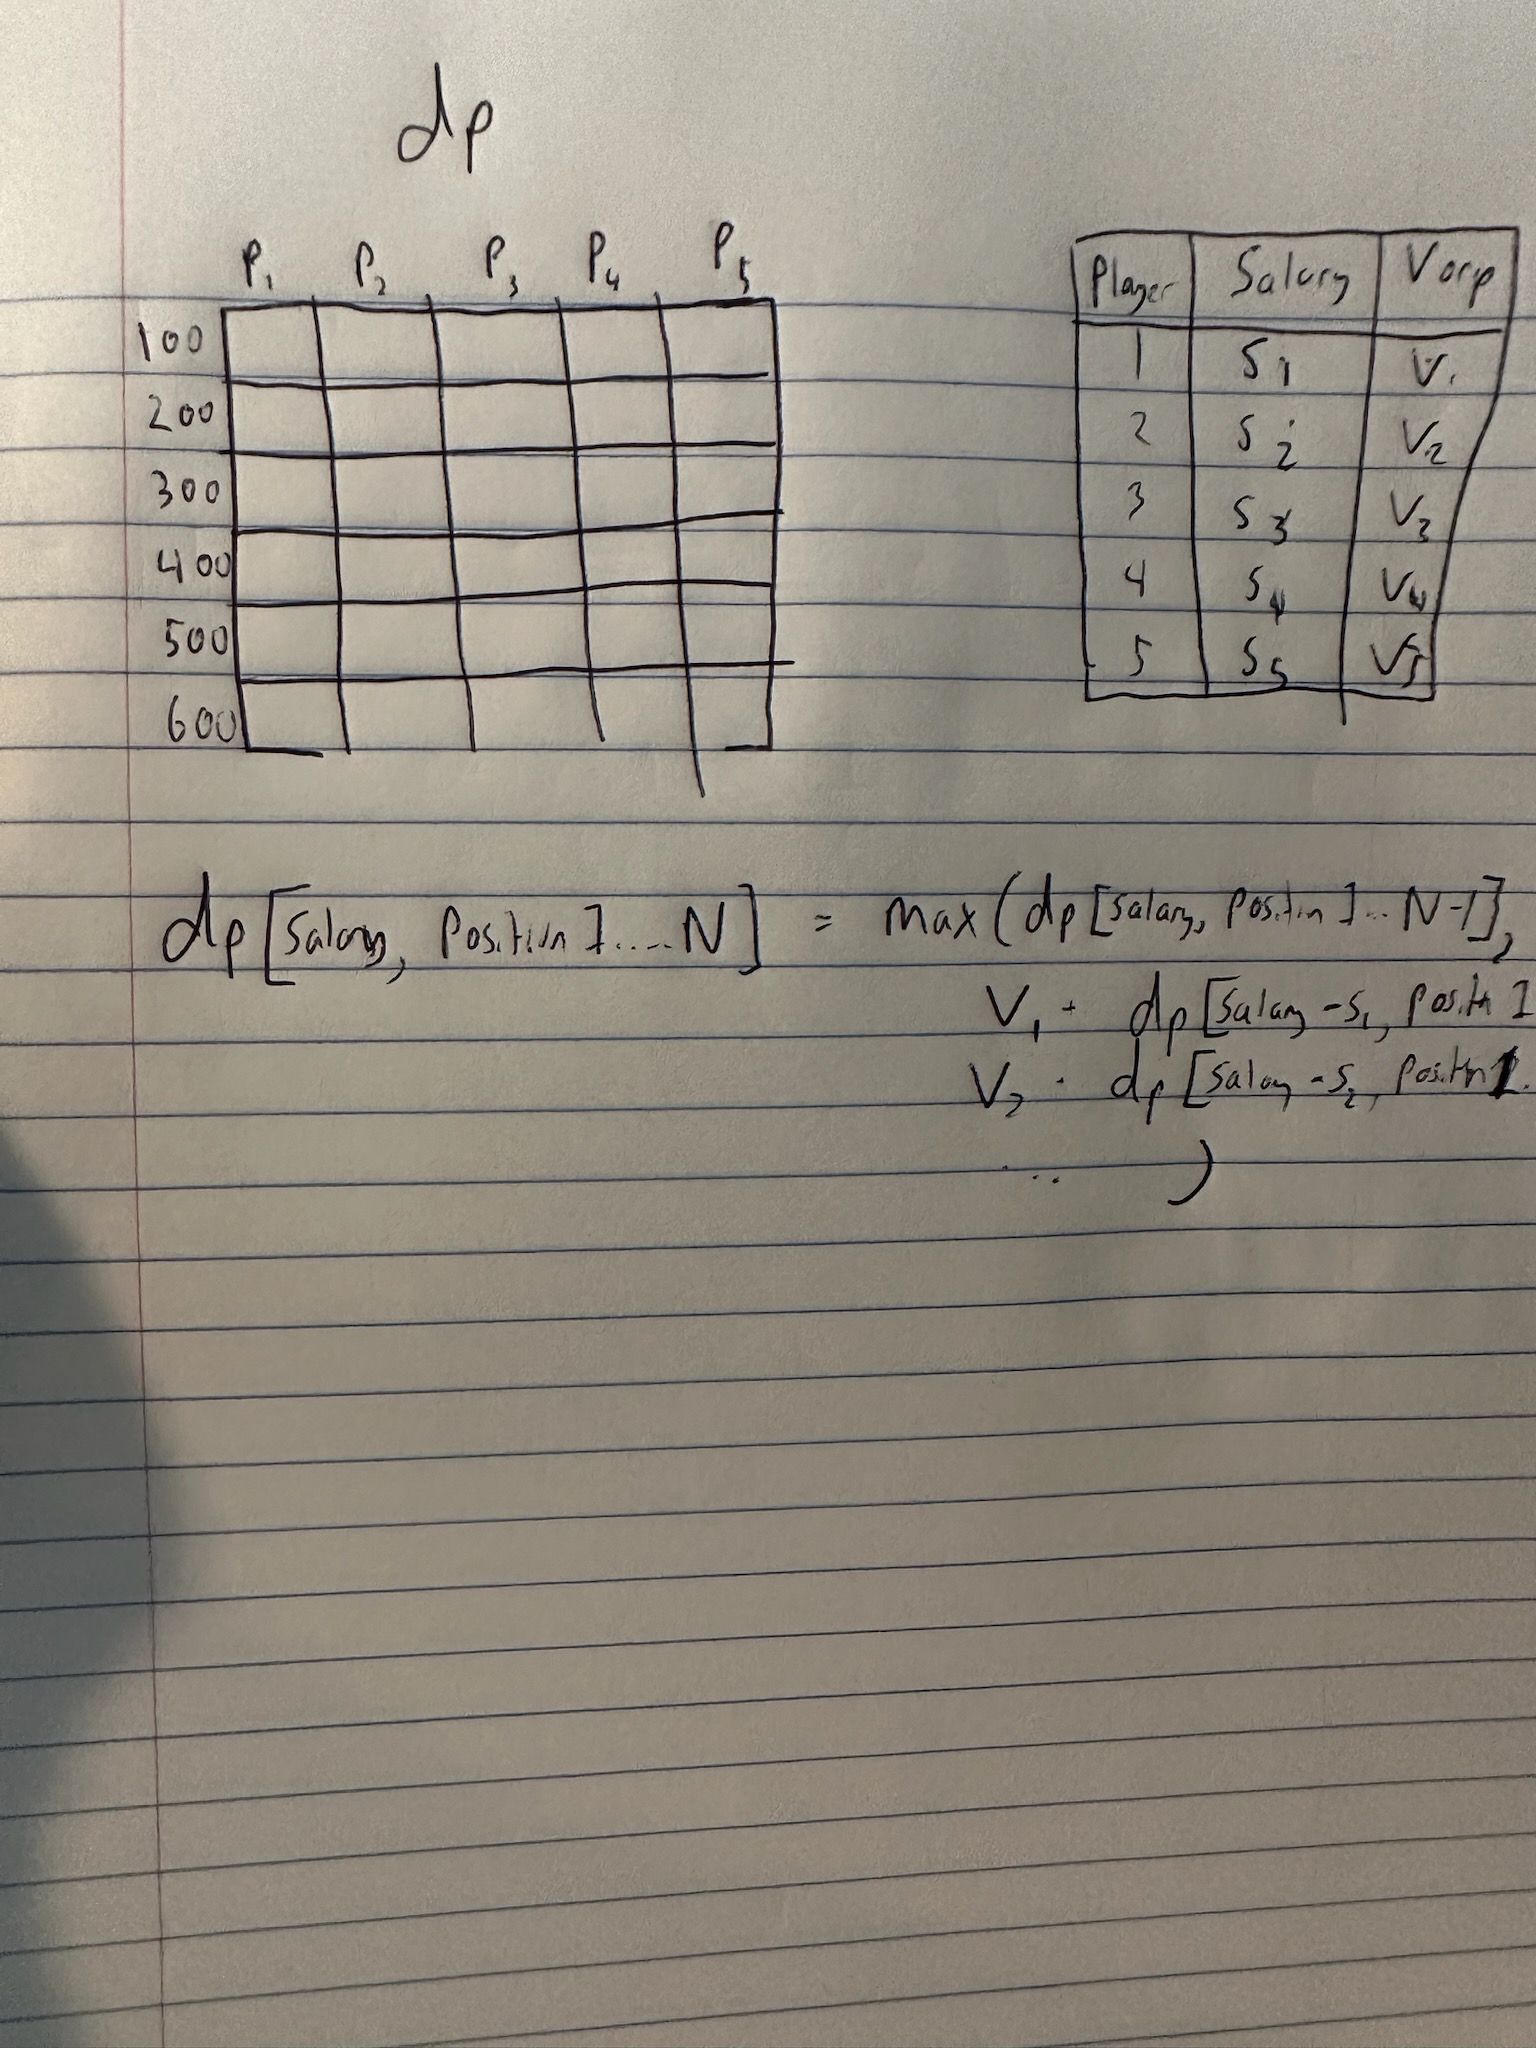 dp
P1 P2 P3 P4 P5
100
200
300
400
500
600
Player Salary Vorp
1 S1 V1
2 S2 V2
3 S3 V3
4 S4 V4
5 S5 V5
dp[Salary, Position 1.....N] = max(dp[Salary, Position 1...N-1],
V1 + dp[Salary - S1, Position 1
V2 + dp[Salary - S2, Position 1..
... )